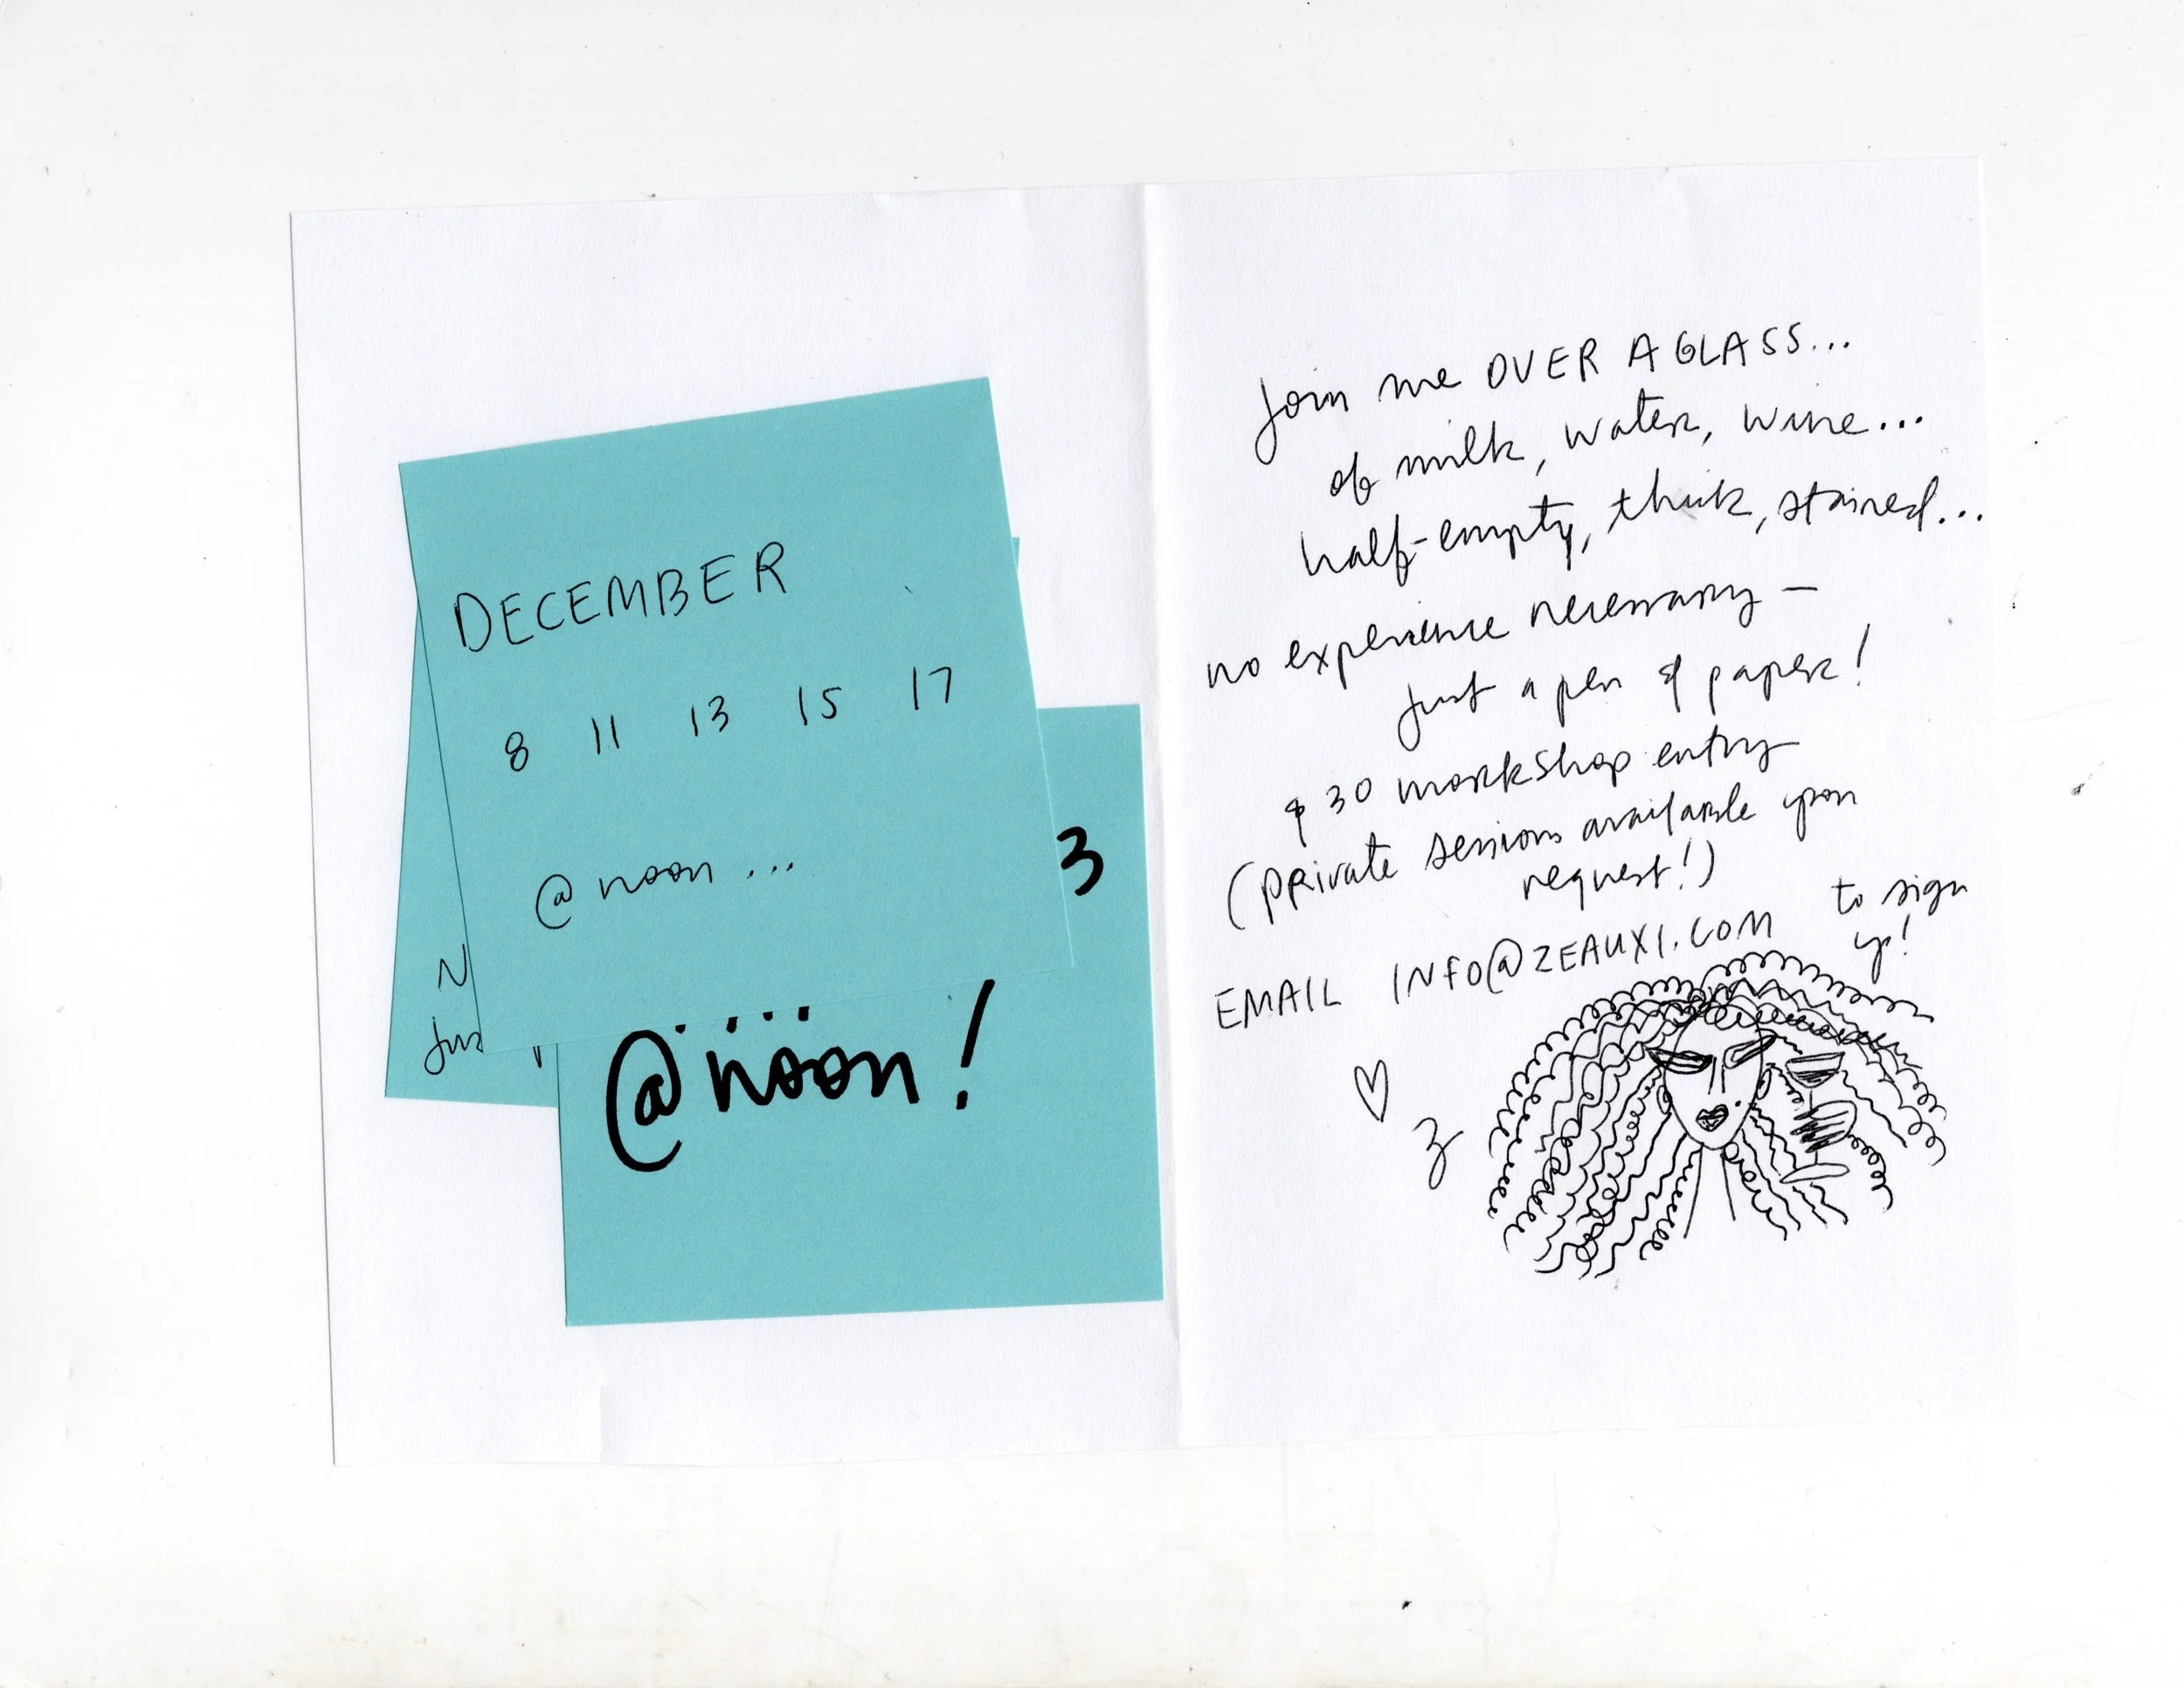 DECEMBER
8 11 13 15 17
@ noon ...
3
N
Jus
@noon!
Join me OVER A GLASS...
of milk, water, wine...
half-empty, thick, stained...
no experience necessary –
Just a pen & paper!
$30 workshop entry
(private sessions available upon
request!)
EMAIL INFO@ZEAUXI.COM to sign
up!
♡
z